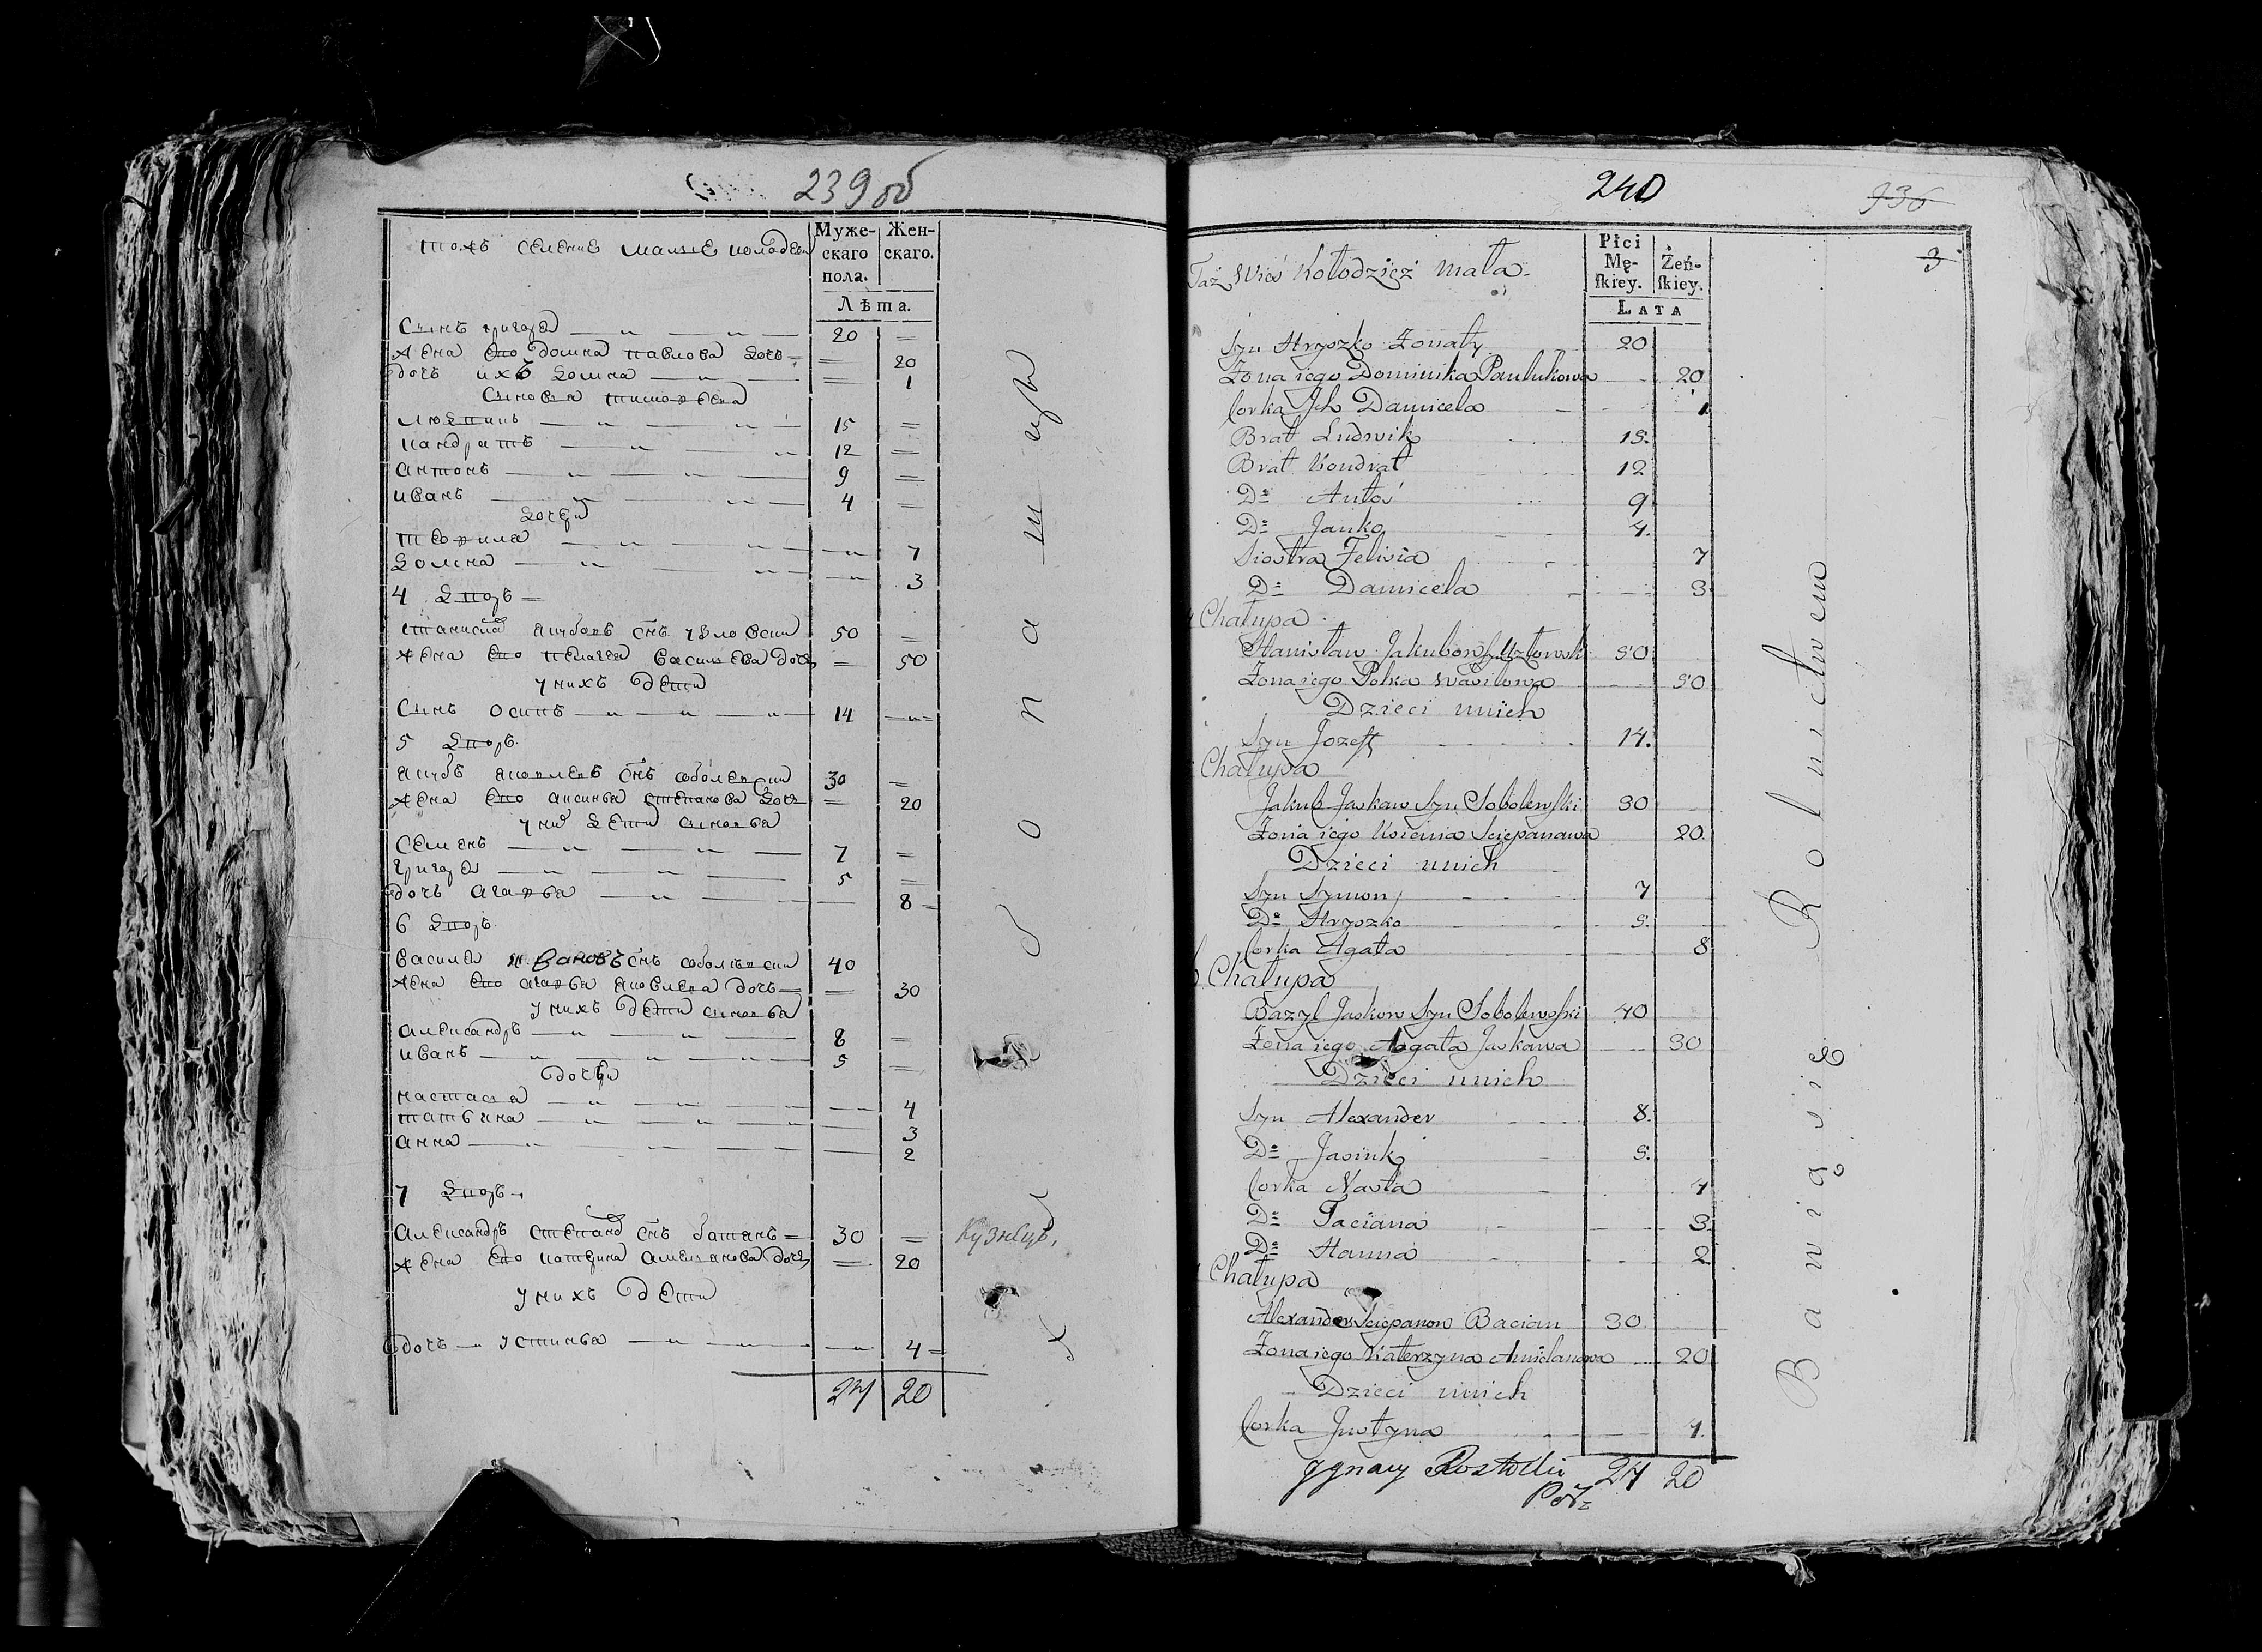 239 об
тожъ селение малые коладези
Муже-
скаго
пола.
Жен-
скаго.
Лѣта.
Сынъ григорей 20
жена его домна павлова дочь 20
дочь ихъ домна 1
Сыновья
15
кандратъ 12
антонъ 9
иванъ 4
дочери
7
домна 3
4 дворъ
станислав якубовъ снъ 50
жена его пелагея васильева дочь 50
у них дети
Сынъ осипъ 14
5 дворъ
якубъ яковлевъ снъ соболевски 30
жена его аксинья степанова дочь 20
у них дети сыновья
Семенъ 7
григорей 5
дочь агафья 8
6 дворъ
василей ивановъ снъ соболевски 40
жена его агафья яковлева дочь 30
у нихъ дети сыновья
александръ 8
иванъ 5
дочери
настасья 4
татьяна 3
анна 2
7 дворъ
александръ степанов снъ батянъ 30 Кузнецъ.
жена его катерина дочь 20
у нихъ дети
дочь устинья 4
24 20
240
936
3
Taż Wieś Kołodzież mała
Płci
Mę-
skiey.
Żeń-
skiey.
LATA
Syn Hryszko Żonaty 20
Żona iego Dominika Pawlukowa 20
Corka Ich Damicela 1
Brat Ludwik 15.
Brat Kondrat 12
Do Antoś 9
Do Janko 4.
Siostra Felisia 7
Do Damicela 3
Chałupa
Stanisław Jakubow S. 50
Żona iego Polka Wasilowa 50
Dzieci unich
Syn Jozeff 14.
Chałupa
Jakub Jaskaw Syn Sobolewski 30
Żona iego Ksienia Sciepanawa 20.
Dzieci unich
Syn Symon 7
Do Hryszko 5.
Corka Agata 8
Chałupa
Bazyl Jaskow Syn Sobolewski 40
Żona iego Agata Jaskawa 30
Dzieci unich
Syn Alexander 8.
Do Jasiuk 5.
Corka Nasta 4
Do Taciana 3
Do Hanna 2
Chałupa
Alexander Sciepanow Bacian 30
Żona iego Katerzyna 20
Dzieci unich
Corka Justyna 4.
24 20
Bawią się Rolnictwem